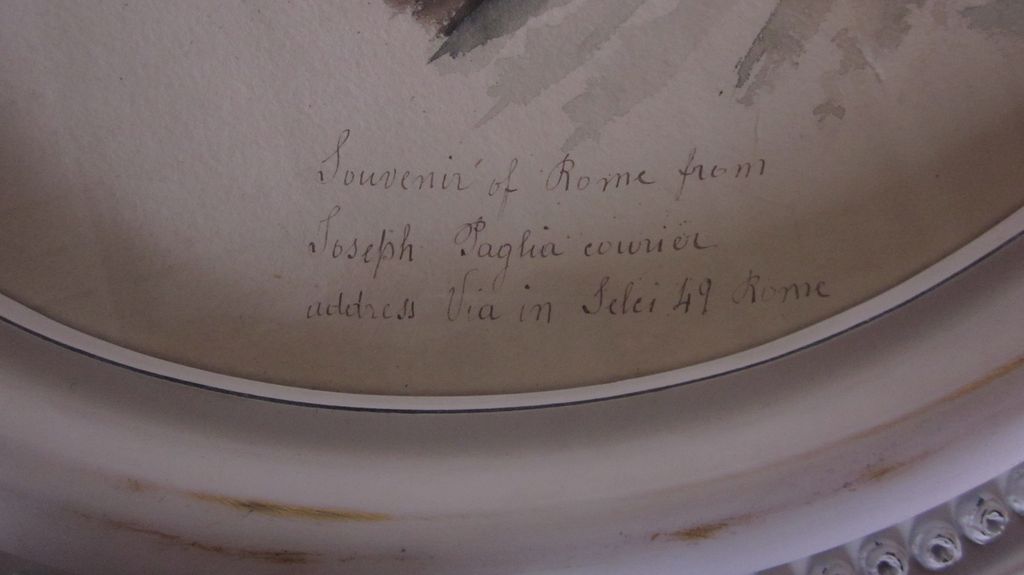 Souvenir of Rome from
Joseph Paglia courier
address Via in Selci 49 Rome